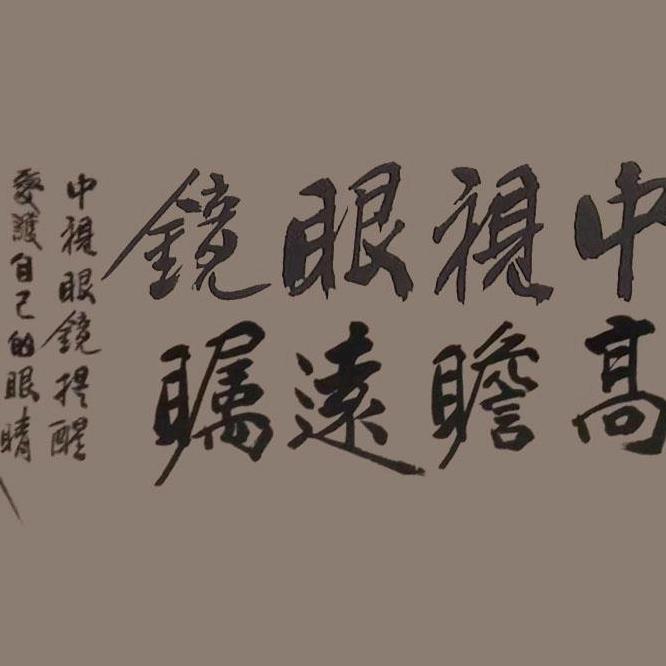 中視眼鏡
高瞻遠矚
中視眼鏡提醒
愛護自己的眼睛